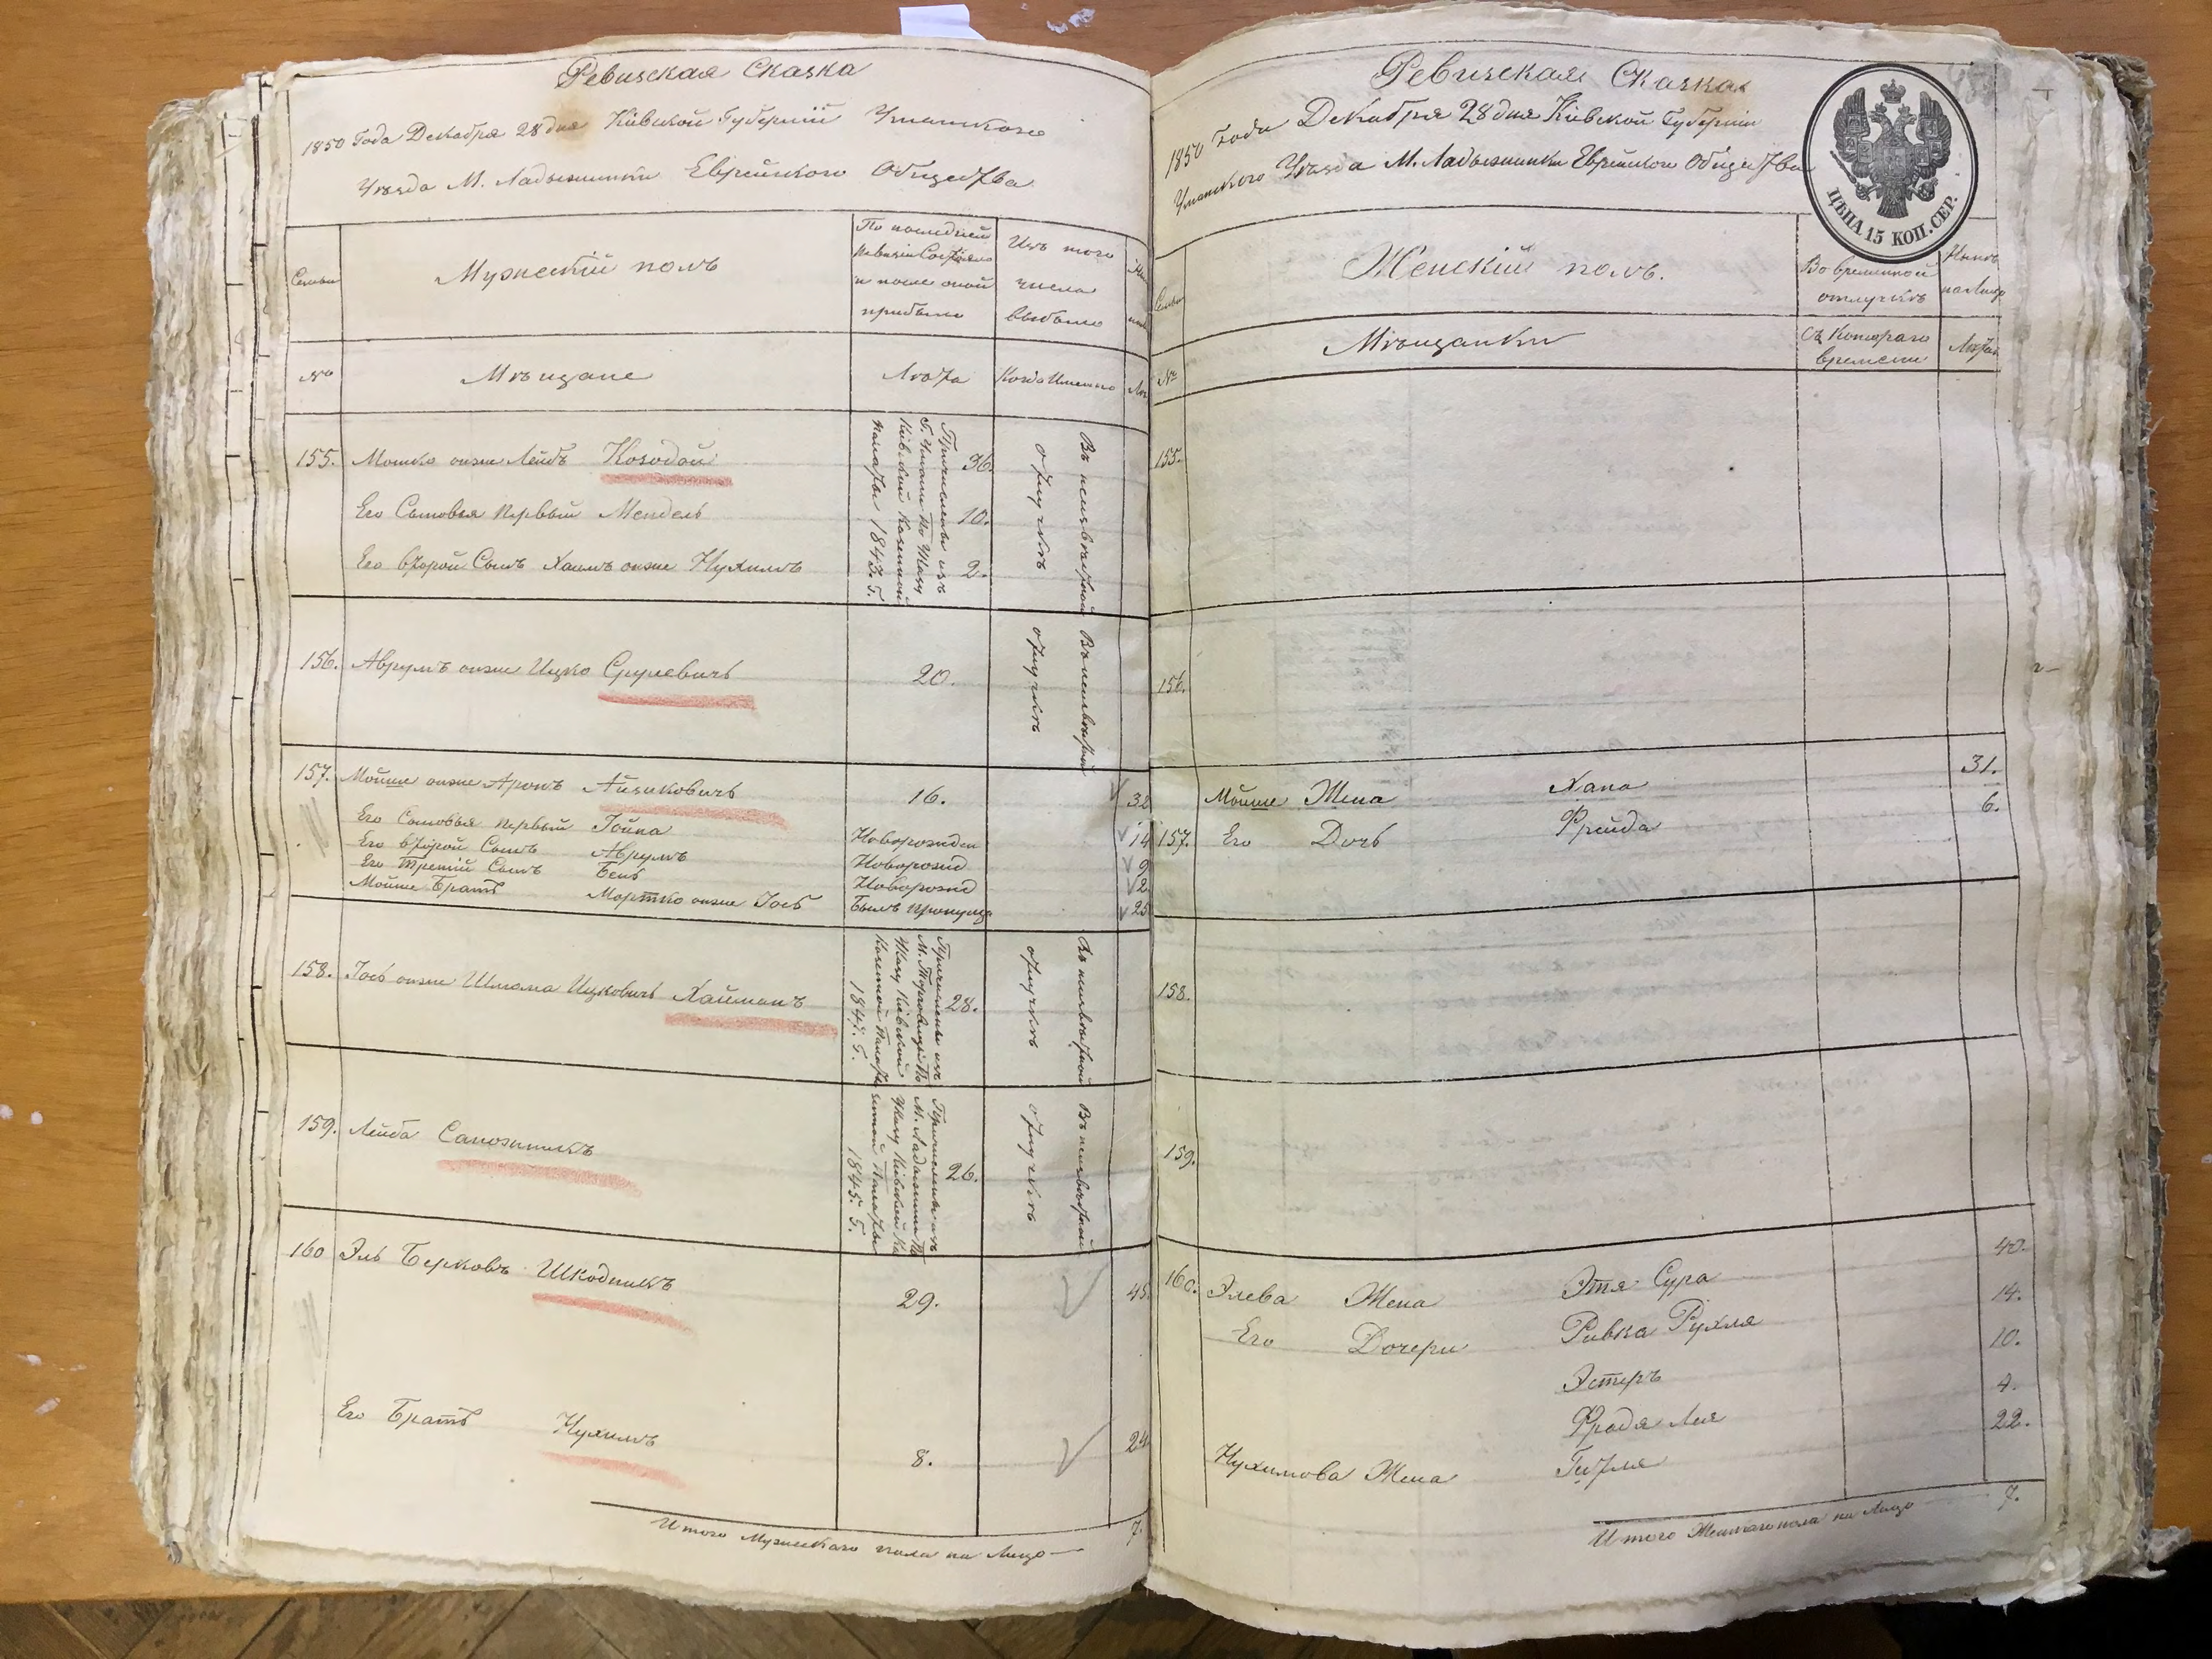 Ревизская Сказка
1850 Года Декабря 28 дня Кіевской Губерніи Уманскаго
Уѣзда М. Ладыжинки Еврейского Общества
Семьи
Мужескій полъ
По последней
Ревизіи Состояло
и после оной
прибыло
Изъ того
числа
выбыло
№
Мѣщане
Лѣта
Когда Именно
155. Мошко онже Лейбъ Козодой 36.
Его Сыновья первый Мендель 10.
Его второй Сынъ Хаимъ онже Нухимъ 2.
Причислены изъ
Г. Умани По Указу
Кіевской Казенной
Палаты 1843. Г.
Въ неизвѣстной
отлучкѣ
156. Аврумъ онже Ицко Срулевичъ 20.
Въ неизвѣстной
отлучкѣ
157. Мойше онже Аронъ Айзиковичъ 16. 32
Его Сыновья первый Іойна Новорожден 14
Его второй Сынъ Аврумъ Новорожд 9
Его Третій Сынъ Бень Новорожд 2
Мойше Братъ Мортко онже Іось Былъ пропущ 25
158. Іось онже Шлома Ицковичъ Хайманъ 28.
Причисленъ изъ
М. Торговицы По
Указу Кіевской
Казенной Палаты
1847. Г.
Въ неизвѣстной
отлучкѣ
159. Лейба Сапожникъ 26.
Причисленъ изъ
М. Ладыжинки По
Указу Кіевской Ка
зенной Палаты
1845. Г.
Въ неизвѣстной
отлучкѣ
160 Эль Берковъ Шкодникъ 29. 45.
Его Братъ Нухимъ 8. 24
Итого Мужескаго пола на Лицо 7.
Ревизская Сказка
1850 Года Декабря 28 дня Кіевской Губерніи
Уманского Уѣзда М. Ладыжинки Еврейского Общества
ЦѢНА 15 КОП. СЕР.
Семьи
Женскій полъ.
Во временной
отлучкѣ
Нынѣ
на Лицо
№
Мѣщанки
Съ Котораго
времени
Лѣта
155.
156.
157. Мойше Жена Хана 31.
Его Дочь Фрейда 6.
158.
159.
160. Элева Жена Этя Сура 40.
Его Дочери Ривка Рухля 14.
Эстеръ 10.
Фрадя Лия 4.
Нухимова Жена Гитля 22.
Итого Женскаго пола на Лицо 7.